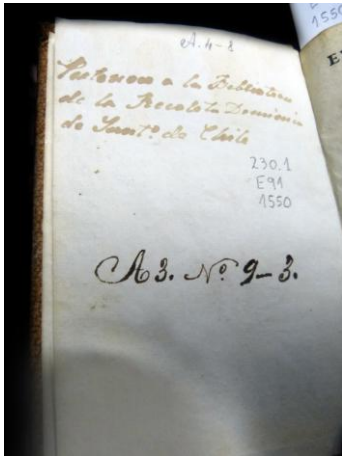 A.4-8
Pertenece a la Biblioteca
de la Recoleta Dominica
de Sant.o de Chile
230.1
E91
1550
A3. No. 9-3.
1550
E